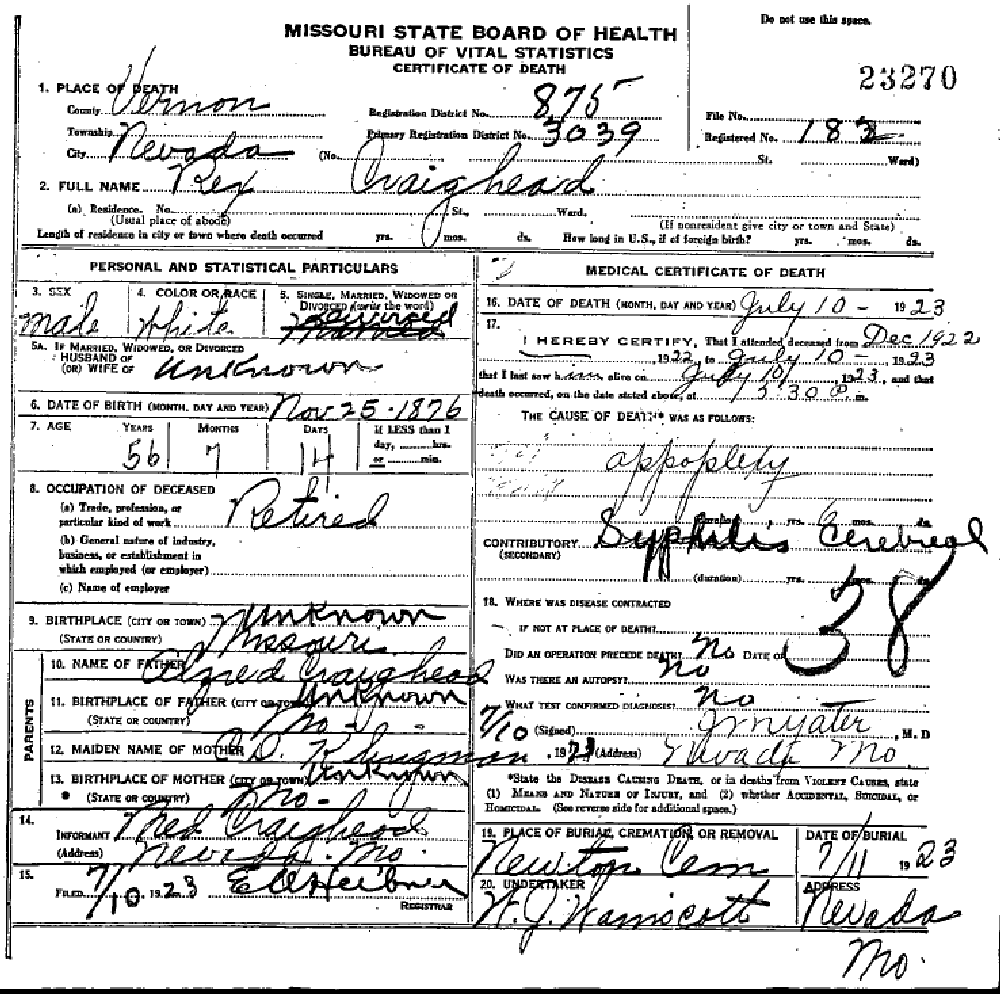 Do not use this space.
MISSOURI STATE BOARD OF HEALTH
BUREAU OF VITAL STATISTICS
CERTIFICATE OF DEATH
23270
1. PLACE OF DEATH
County Vernon Registration District No. 875 File No.
Township Primary Registration District No. 3039 Registered No. 183
City Nevada (No. St. Ward)
2. FULL NAME Rex Craighead
(a) Residence. No. St., Ward.
(Usual place of abode) (If nonresident give city or town and State)
Length of residence in city or town where death occurred yrs. mos. ds. How long in U.S., if of foreign birth? yrs. mos. ds.
PERSONAL AND STATISTICAL PARTICULARS
3. SEX 4. COLOR OR RACE 5. SINGLE, MARRIED, WIDOWED OR
DIVORCED (write the word)
Male White
5A. IF MARRIED, WIDOWED, OR DIVORCED
HUSBAND OF
(OR) WIFE OF Unknown
6. DATE OF BIRTH (MONTH, DAY AND YEAR) Nov 25-1876
7. AGE YEARS MONTHS DAYS If LESS than 1
day, hrs.
or min.
56 7 14
8. OCCUPATION OF DECEASED
(a) Trade, profession, or
particular kind of work Retired
(b) General nature of industry,
business, or establishment in
which employed (or employer)
(c) Name of employer
9. BIRTHPLACE (CITY OR TOWN) Unknown
(STATE OR COUNTRY) Missouri
PARENTS
10. NAME OF FATHER Craighead
11. BIRTHPLACE OF FATHER (CITY OR TOWN) Unknown
(STATE OR COUNTRY) Mo.
12. MAIDEN NAME OF MOTHER Klingman
13. BIRTHPLACE OF MOTHER (CITY OR TOWN) Unknown
(STATE OR COUNTRY) Mo-
14.
INFORMANT Craighead
(Address) Nevada. Mo.
15.
FILED 7/10 1923
REGISTRAR
MEDICAL CERTIFICATE OF DEATH
16. DATE OF DEATH (MONTH, DAY AND YEAR) July 10 - 1923
17.
I HEREBY CERTIFY, That I attended deceased from Dec 1922
1922, to July 10 - 1923
that I last saw him alive on July 10, 1923, and that
death occurred, on the date stated above, at 3:30 P. m.
THE CAUSE OF DEATH* WAS AS FOLLOWS:
appoplexy
(duration) yrs. mos. ds.
CONTRIBUTORY Syphilis Cerebreal
(SECONDARY)
(duration) yrs. mos. ds.
38
18. WHERE WAS DISEASE CONTRACTED
IF NOT AT PLACE OF DEATH?
DID AN OPERATION PRECEDE DEATH? No DATE OF
WAS THERE AN AUTOPSY? No
WHAT TEST CONFIRMED DIAGNOSIS? No
(Signed) J M Yater, M. D
7/10, 1923 (Address) Nevada Mo.
*State the DISEASE CAUSING DEATH, or in deaths from VIOLENT CAUSES, state
(1) MEANS AND NATURE OF INJURY, and (2) whether ACCIDENTAL, SUICIDAL, or
HOMICIDAL. (See reverse side for additional space.)
19. PLACE OF BURIAL, CREMATION, OR REMOVAL DATE OF BURIAL
Newton Cem 7/11 1923
20. UNDERTAKER ADDRESS
W. J. Wainscott Nevada
Mo.